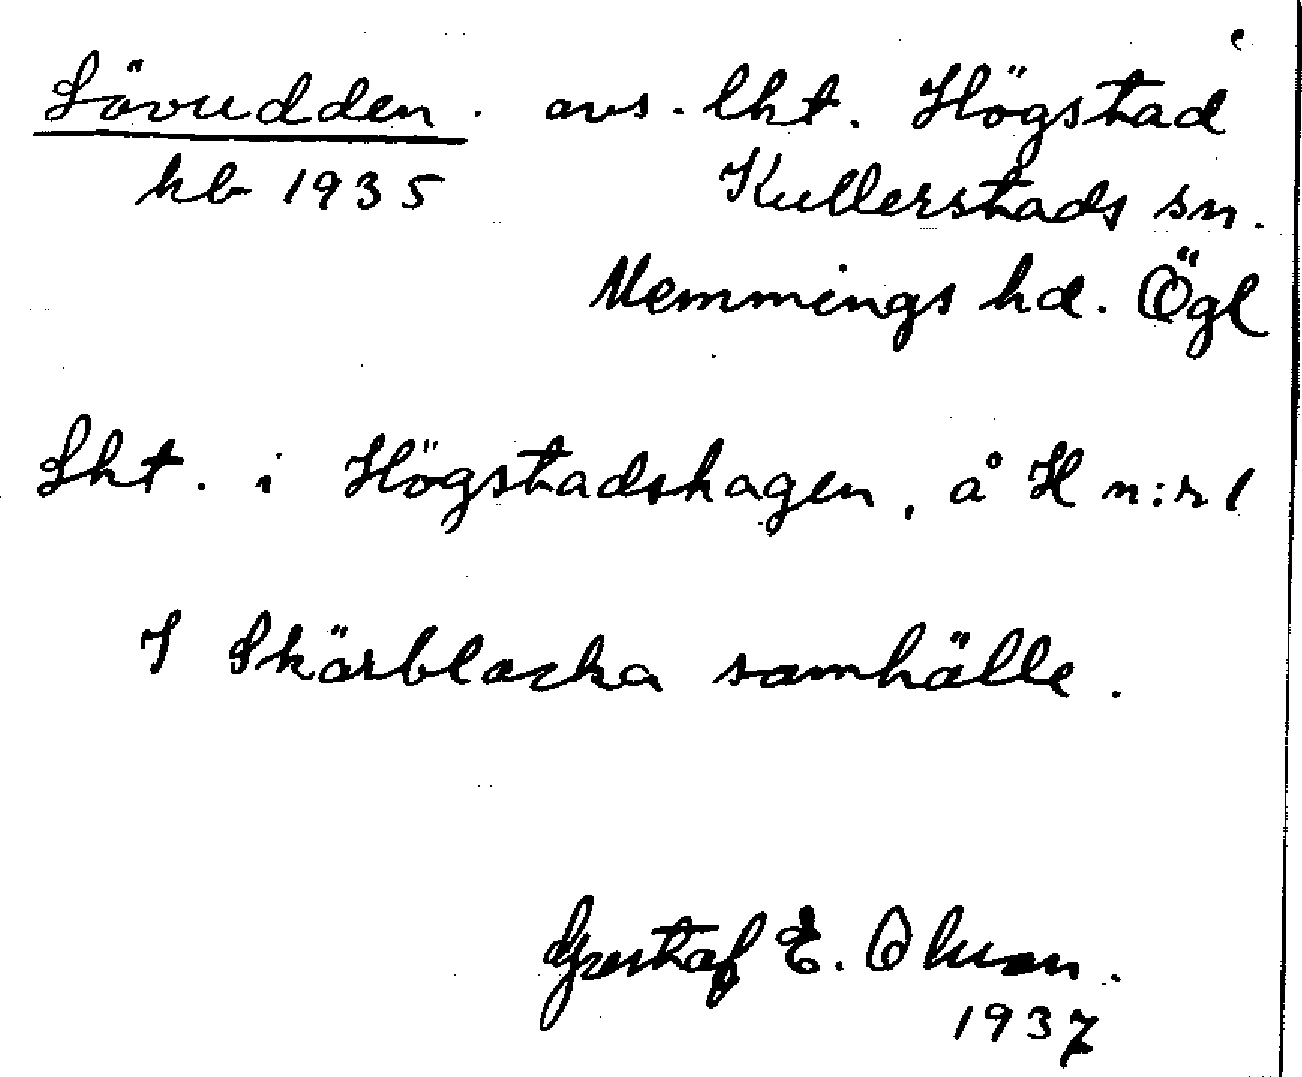 Lövudden. avs. lht. Högstad
kb 1935 Kullerstads sn.
Memmings hd. Ögl
Lht. i Högstadshagen, å H n:r 1
I Skärblacka samhälle.
Gustaf E. Olsson.
1937